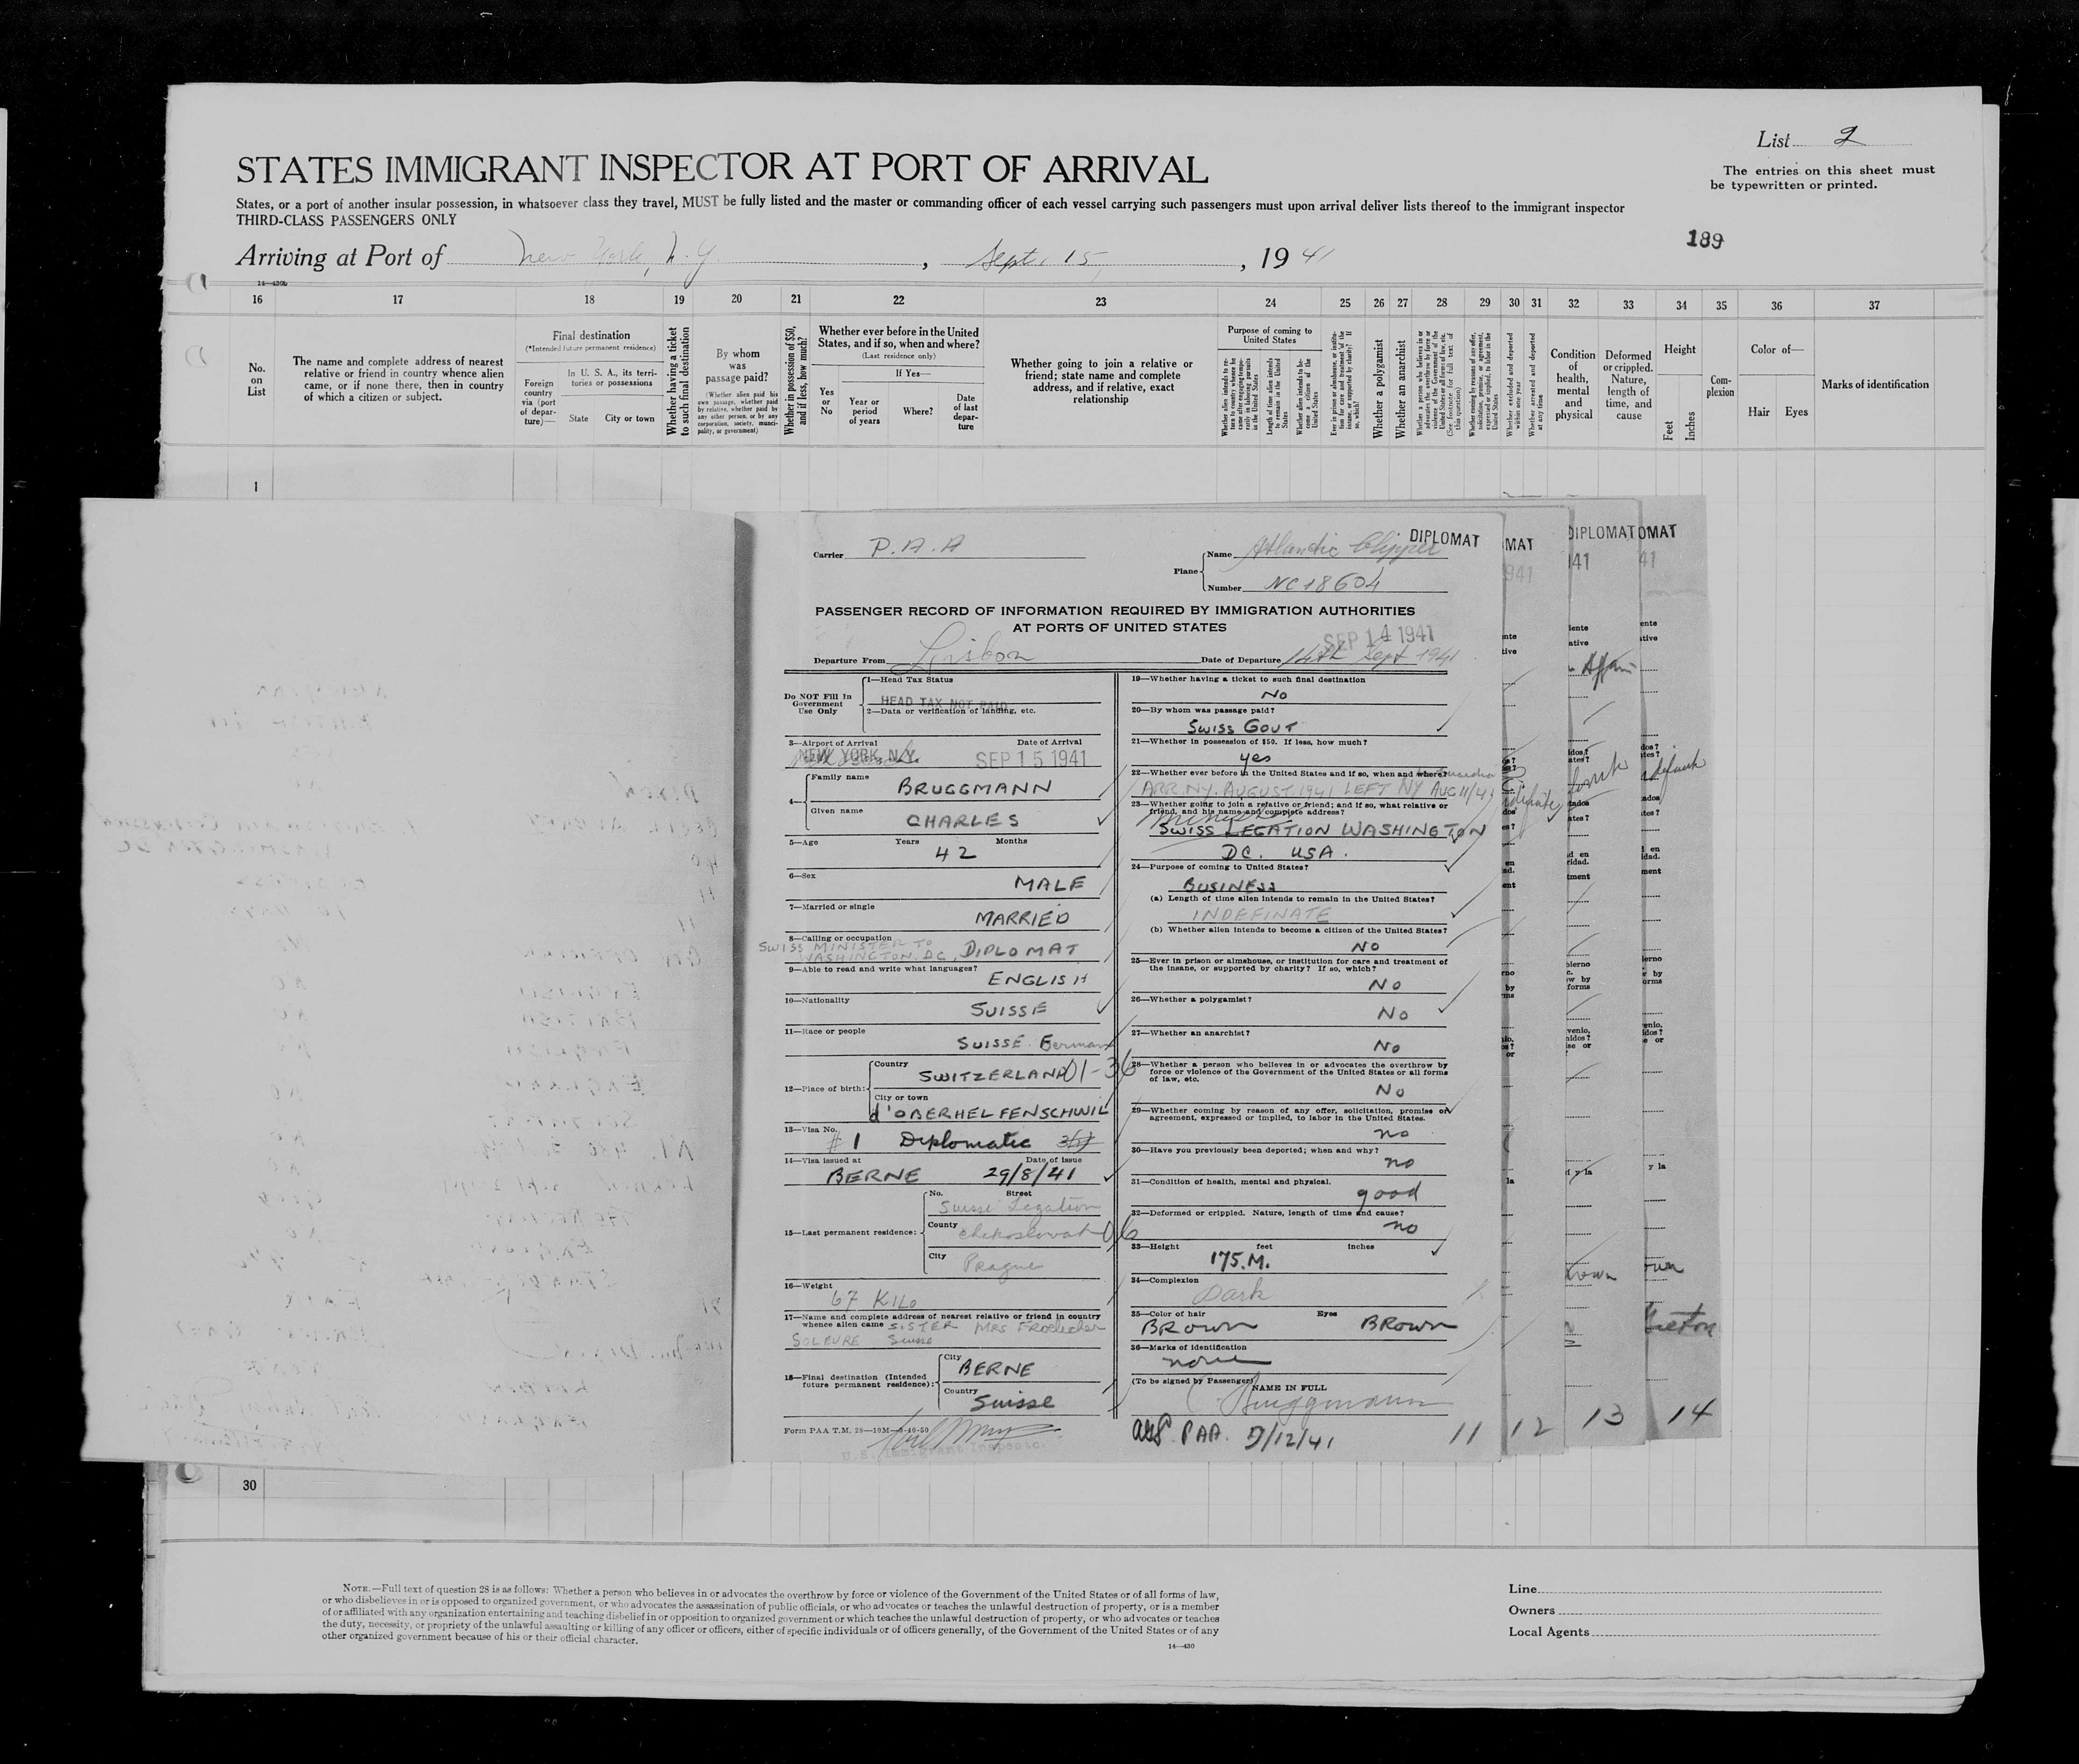 List 2
STATES IMMIGRANT INSPECTOR AT PORT OF ARRIVAL
The entries on this sheet must
be typewritten or printed.
States, or a port of another insular possession, in whatsoever class they travel, MUST be fully listed and the master or commanding officer of each vessel carrying such passengers must upon arrival deliver lists thereof to the immigrant inspector
THIRD-CLASS PASSENGERS ONLY
189
Arriving at Port of New York, N.Y. , Sept. 15, , 19 41
14—430b
16 17 18 19 20 21 22 23 24 25 26 27 28 29 30 31 32 33 34 35 36 37
No. on List
The name and complete address of nearest relative or friend in country whence alien came, or if none there, then in country of which a citizen or subject.
Final destination
(*Intended future permanent residence)
Foreign country via (port of departure)—
In U. S. A., its territories or possessions
State City or town
Whether having a ticket to such final destination
By whom was passage paid?
(Whether alien paid his own passage, whether paid by relative, whether paid by any other person, or by any corporation, society, municipality, or government)
Whether in possession of $50, and if less, how much?
Whether ever before in the United States, and if so, when and where?
(Last residence only)
Yes or No
If Yes—
Year or period of years
Where?
Date of last departure
Whether going to join a relative or friend; state name and complete address, and if relative, exact relationship
Purpose of coming to United States
Whether alien intends to return to country whence he came after engaging temporarily in laboring pursuits in the United States
Length of time alien intends to remain in the United States
Whether alien intends to become a citizen of the United States
Ever in prison or almshouse, or institution for care and treatment of the insane, or supported by charity? If so, which?
Whether a polygamist
Whether an anarchist
Whether a person who believes in or advocates the overthrow by force or violence of the Government of the United States or all forms of law, etc. (See footnote for full text of this question)
Whether coming by reason of any offer, solicitation, promise, or agreement, expressed or implied, to labor in the United States
Whether excluded and deported within one year
Whether arrested and deported at any time
Condition of health, mental and physical
Deformed or crippled. Nature, length of time, and cause
Height
Feet Inches
Complexion
Color of—
Hair Eyes
Marks of identification
1
Carrier P.A.A
Plane
Name Atlantic Clipper
DIPLOMAT
Number NC18604
PASSENGER RECORD OF INFORMATION REQUIRED BY IMMIGRATION AUTHORITIES
AT PORTS OF UNITED STATES
SEP 14 1941
Departure From Lisbon
Date of Departure 14th Sept 1941
Do NOT Fill In
Government
Use Only
1—Head Tax Status
HEAD TAX NOT PAID
2—Data or verification of landing, etc.
3—Airport of Arrival Date of Arrival
NEW YORK, N.Y. SEP 15 1941
4—
Family name
BRUGGMANN
Given name
CHARLES
5—Age Years Months
42
6—Sex
MALE
7—Married or single
MARRIED
8—Calling or occupation
SWISS MINISTER TO
WASHINGTON. DC, DIPLOMAT
9—Able to read and write what languages?
ENGLISH
10—Nationality
SUISSE
11—Race or people
SUISSE German
12—Place of birth:
Country
SWITZERLAND 01-36
City or town
d'OBERHELFENSCHWIL
13—Visa No.
# 1 Diplomatic
14—Visa issued at Date of issue
BERNE 29/8/41
15—Last permanent residence:
No. Street
Suisse Legation
County
06
City
Prague
16—Weight
67 KILO
17—Name and complete address of nearest relative or friend in country
whence alien came SISTER MRS
SOLEURE Suisse
18—Final destination (Intended
future permanent residence):
City
BERNE
Country
Suisse
Form PAA T.M. 28—10M—9-40-50
U.S. Immigrant Inspector
19—Whether having a ticket to such final destination
No
20—By whom was passage paid?
SWISS GOVT
21—Whether in possession of $50. If less, how much?
yes
22—Whether ever before in the United States and if so, when and where?
ARR. NY. AUGUST 1941 LEFT NY AUG 11/41
23—Whether going to join a relative or friend; and if so, what relative or
friend, and his name and complete address?
SWISS LEGATION WASHINGTON
DC. USA.
24—Purpose of coming to United States?
BUSINESS
(a) Length of time alien intends to remain in the United States?
INDEFINATE
(b) Whether alien intends to become a citizen of the United States?
NO
25—Ever in prison or almshouse, or institution for care and treatment of
the insane, or supported by charity? If so, which?
No
26—Whether a polygamist?
No
27—Whether an anarchist?
No
28—Whether a person who believes in or advocates the overthrow by
force or violence of the Government of the United States or all forms
of law, etc.
No
29—Whether coming by reason of any offer, solicitation, promise or
agreement, expressed or implied, to labor in the United States.
no
30—Have you previously been deported; when and why?
no
31—Condition of health, mental and physical.
good
32—Deformed or crippled. Nature, length of time and cause?
no
33—Height feet inches
175.M.
34—Complexion
Dark
35—Color of hair Eyes
BROWN BROWN
36—Marks of identification
none
(To be signed by Passenger)
NAME IN FULL
Bruggmann
PAA. 9/12/41
11 12 13 14
MAT
DIPLOMAT
OMAT
30
NOTE.—Full text of question 28 is as follows: Whether a person who believes in or advocates the overthrow by force or violence of the Government of the United States or of all forms of law,
or who disbelieves in or is opposed to organized government, or who advocates the assassination of public officials, or who advocates or teaches the unlawful destruction of property, or is a member
of or affiliated with any organization entertaining and teaching disbelief in or opposition to organized government or which teaches the unlawful destruction of property, or who advocates or teaches
the duty, necessity, or propriety of the unlawful assaulting or killing of any officer or officers, either of specific individuals or of officers generally, of the Government of the United States or of any
other organized government because of his or their official character.
14—430
Line
Owners
Local Agents